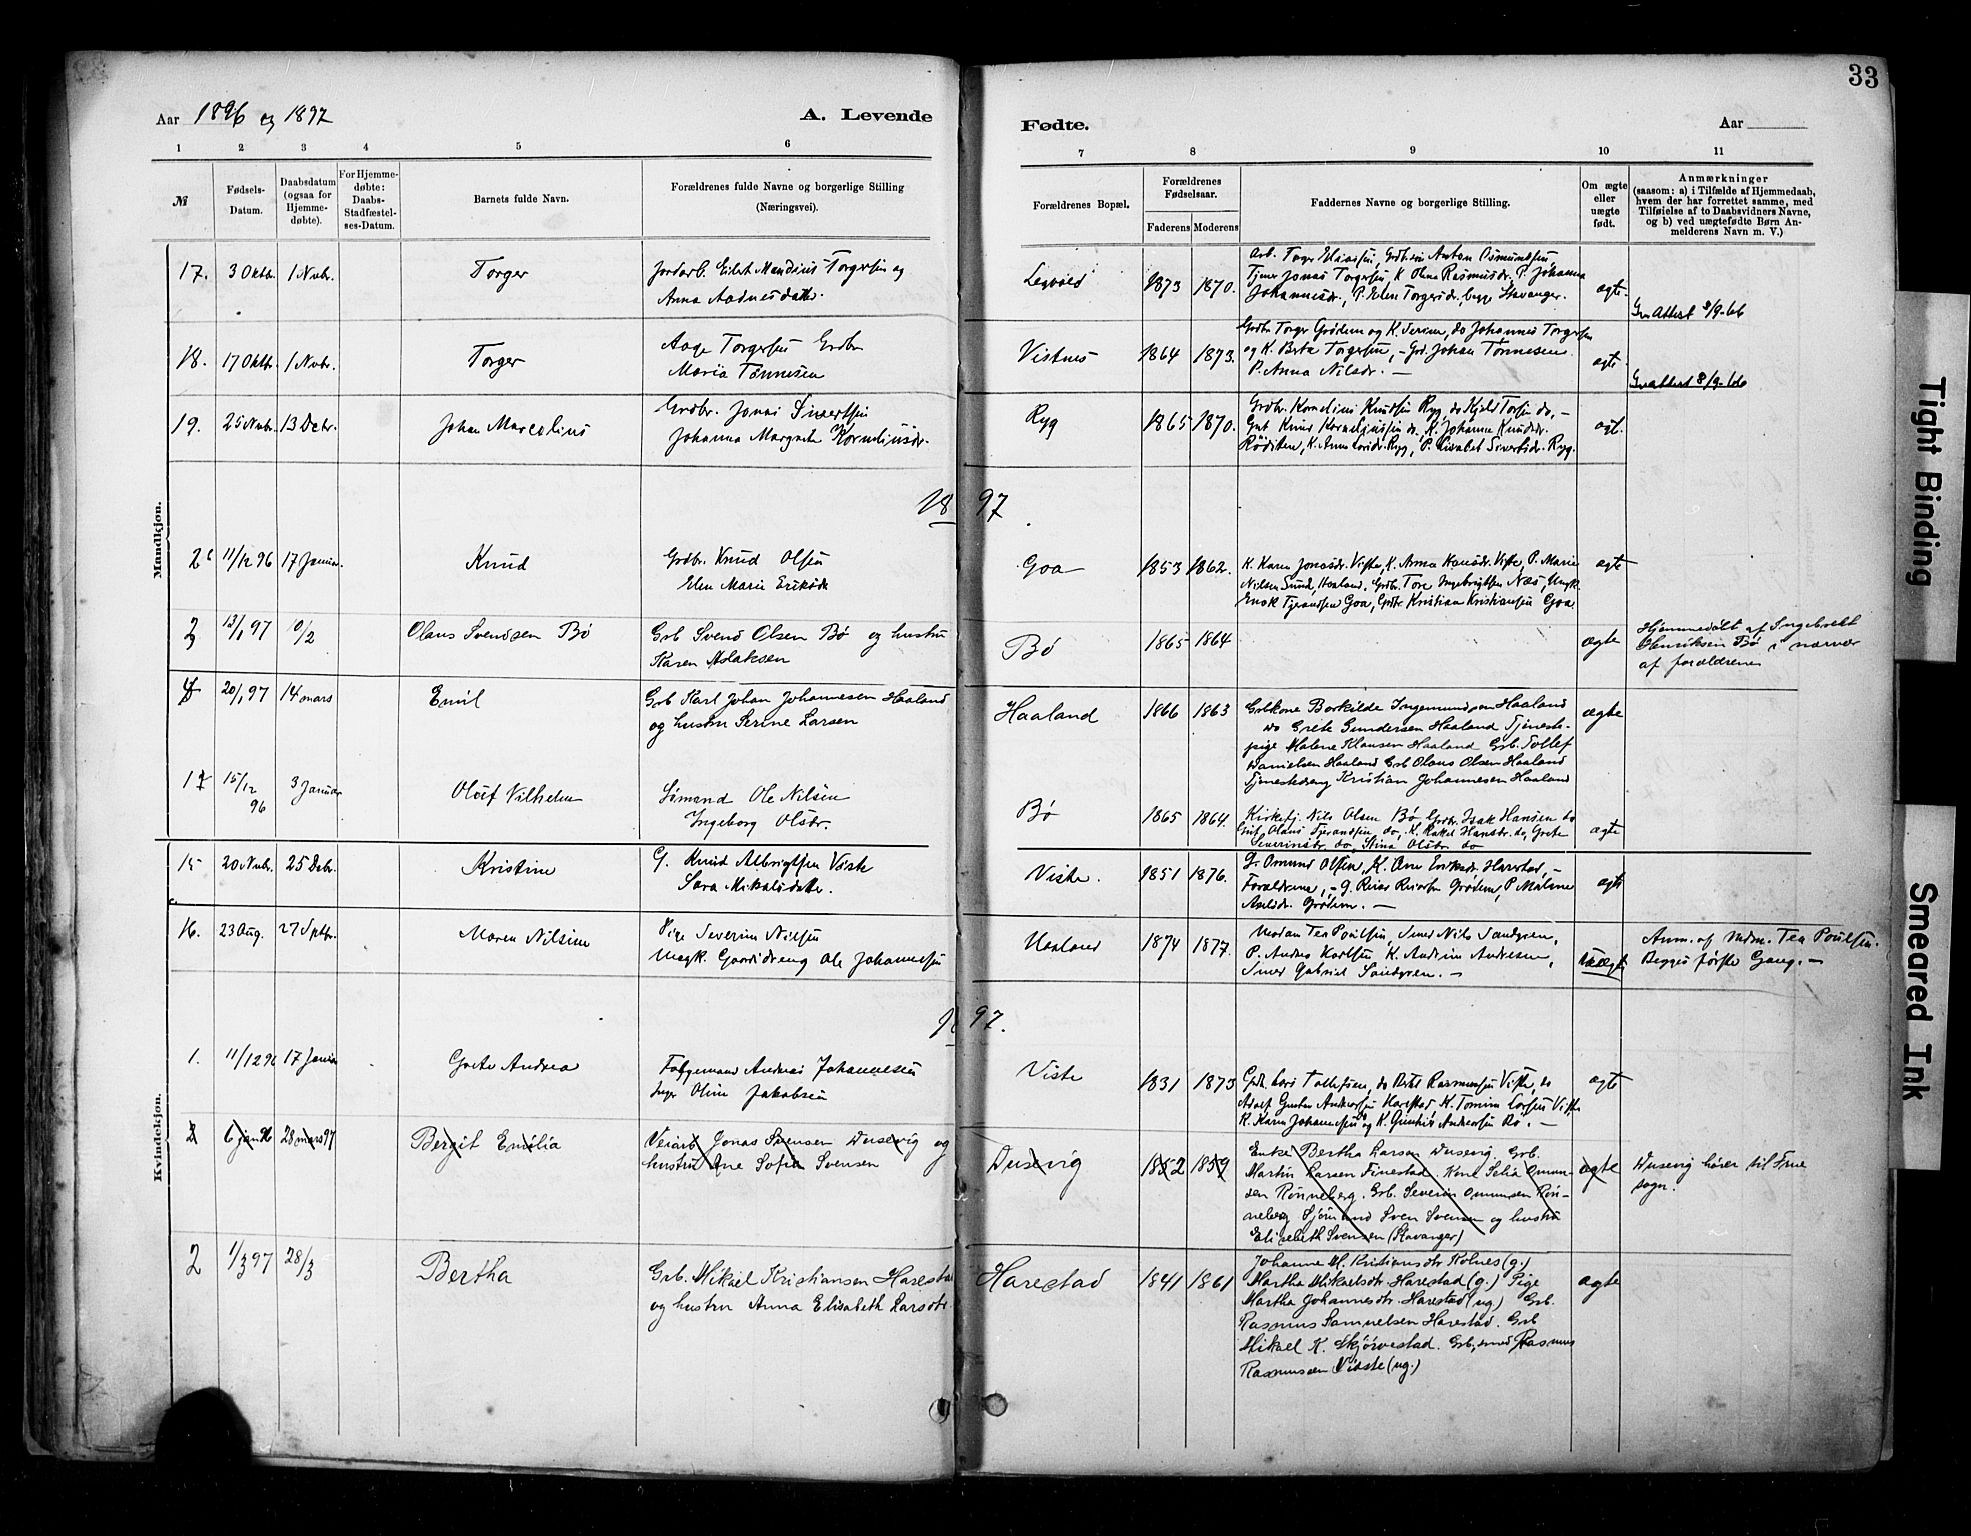 33
Aar 1896 og 1897 A. Levende Fødte. Aar
1 2 3 4 5 6 7 8 9 10 11
№ Fødsels-Datum. Daabsdatum (ogsaa for Hjemme-døbte). For Hjemme-døbte: Daabs-Stadfæstel-ses-Datum. Barnets fulde Navn. Forældrenes fulde Navne og borgerlige Stilling (Næringsvei). Forældrenes Bopæl. Forældrenes Fødselsaar. Faderens Moderens Faddernes Navne og borgerlige Stilling. Om ægte eller uægte født. Anmærkninger (saasom: a) i Tilfælde af Hjemmedaab, hvem der har forrettet samme, med Tilføielse af to Daabsvidners Navne, og b) ved uægtefødte Børn An-melderens Navn m. V.)
Mandkjøn.
17. 3 Oktbr. 1 Nvbr. Torger
Torgersen og
Anna Aadnesdatter.
1873 1870.
Tjener Jonas Torgersen K. Olena Rasmusdr. P. Johanna
Johannesdr., P. Elen Torgersdr. begge Stavanger.
ægte.
Attest 8/9-66
18. 17 Oktbr. 1 Nvbr. Torger
Aage Torgersen Grdbr
Maria Tønnesen
Vistnes 1864 1873.
Grdbr Torger Grødem og K. Serine, do Johannes Torgersen
og K. Berta Torgersen, - Grd. Johan Tønnesen.
P. Anna Nilsdr. —
ægte
Attest 8/9-66
19. 25 Nvbr. 13 Decbr. Johan Marcelius
Grdbr. Jonas Sivertsen
Johanna Margrete Korneliusdr.
Ryg 1865 1870.
Grdbr. Kornelius Knudsen Ryg, do Kjeld Torsen do, -
Gut Knud Korneliussen do, K. Johanna Knudsdr.
Sivertsdr. Ryg.
1897
2 11/12 96 17 Januar. Knud
Grdbr. Knud Olsen
Elen Marie Eriksdr
Goa 1853 1862.
K. Karen Jonasdr. Viste, K. Anna Hansdr. Viste, P. Marie
Nilsen Sund, Haaland. Grdbr. Tore Ingebrigtsen Næs, Ungk.
Enok Tjerandsen Goa, Grdbr Kristian Kristiansen Goa
ægte
3 13/1 97 10/2 Olaus Svendsen Bø
Grb Svend Olsen Bø og hustru
Karen Aslaksen
Bø 1865 1864 ægte
Hjemmedøbt af Ingebrekt
Henriksen Bø i nærvær
af forældrene
4 20/1 97 14 mars Emil
Grb Karl Johan Johannesen Haaland
og hustru Serine Larsen
Haaland 1866 1863
Grbkone Borkilde Ingemundsen Haaland
do Grete Gundersen Haaland Tjeneste-
pige Malene Klausen Haaland Grb. Tollef
Danielsen Haaland Grb Olaus Olsen Haaland
Tjenestedreng Kristian Johannesen Haaland
ægte
1 15/12 96 3 Januar Oluf Vilhelm
Sømand Ole Nilsen
Ingeborg Olsdr.
Bø 1865 1864.
Kirketj. Nils Olsen Bø Grdbr. Isak Hansen do
Gut Olaus Tjerandsen do, K. Rakel Hansdr. do, Grete
Severinsdr. do, Stina Olsdr. do
ægte
Kvindekjøn.
15 20 Nvbr. 25 Debr. Kristine
G. Knud Albrigtsen Viste
Sara Mikalsdatter.
Viste. 1851 1876.
G. Omund Olsen, K. Ane Eriksdr. Harestad, -
Forældrene, - G. Grødem, P. Malene
Axelsdr. Grødem. —
ægte
16. 23 Aug. 27 Septbr. Maren Nilsine
Pige Severine Nilsen
Ungk. Gaardsdreng Ole Johannesen
Haaland 1874 1877.
Madam Tea Poulsen, Smed Nils Sandgren,
P. Andrea Karlsen, K. Andrine Andresen,
Smed Gabriel Sandgren. —
uægte
Anm. af Mdm. Tea Poulsen.
Begges første Gang. —
1897.
1. 11/12 96 17 Januar Grete Andrea
Andreas Johannesen
Inger Oline Jakobsen
Viste 1831 1873
Grdb. Lars Tollefsen, do Bertel Rasmussen Viste, do
Adolf Gustav Andersen Harestad K. Tomine Larsen Viste
K. Karen Johannesen og K. Andersen Bø. —
ægte
2 6 jan 96 28 mars 97 Bergit Emilia
Veiarb Jonas Svensen Dusevig og
hustru Ane Sofia Svensen
Dusevig 1852 1859
Enke Bertha Larsen Dusevig. Grb.
Martin Larsen Finestad. Kone Selia Omun-
sen Rønneberg. Grb. Severin Omunsen Røn-
neberg Sjømand Sven Svensen og hustru
Elisabeth Svensen (Stavanger)
ægte
Dusevig hører til Frue
sogn.
2 1/3 97 28/3 Bertha
Grb. Mikael Kristiansen Harestad
og hustru Anna Elisabeth Larsdtr.
Harestad 1841 1861
Johanne M. Kristiansdtr. Kolnes (g.)
Martha Mikaelsdtr. Harestad (g.) Pige
Martha Johannesdtr. Harestad (ug.) Grb.
Rasmus Samuelsen Harestad. Grb
Mikael K. Skjørvestad. Grb, smed Rasmus
Rasmussen Vidste (ug.)
ægte
Tight Binding
Smeared Ink